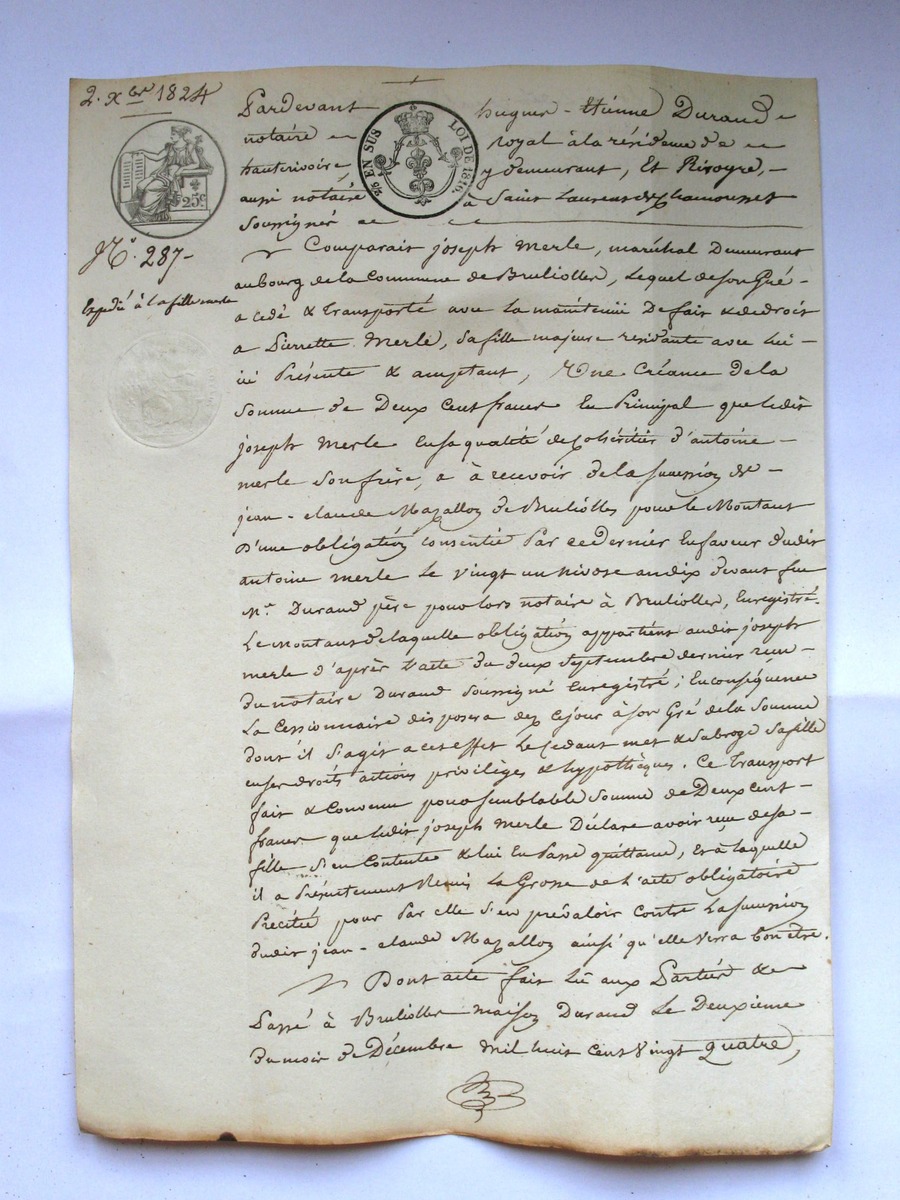 2. Xbre 1824
25c
25 EN SUS LOI DE 1816.
No. 287
Expédié à la fille merle
Pardevant hugues-Etienne Durand
notaire royal à la résidence de
hauterivoire, y demeurant, Et Rivoyre,
aussi notaire à Saint Laurent de Chamousset
Soussignés
Comparait joseph Merle, maréchal Demeurant
au bourg de la Commune de Brulioller, Lequel de son Gré
a cédé & transporté avec La maintenüe De fait & de droit
a Pierrette Merle, Sa fille majeure residante avec Lui
ici Présente & acceptant, Une Créance de la
Somme de Deux Cent francs En Principal que ledit
joseph merle En sa qualité de Cohéritier d'antoine
merle Son frère, a à recevoir de la Succession de
jean-claude Mazallon de Bruliolles pour le Montant
D'une obligation Consentie Par ce dernier En faveur dudit
antoine merle Le vingt un Nivose an dix devant feu
Me. Durand père pour lors notaire à Brulioller, Enregistré.
Le montant de laquelle obligation appartient audit joseph
merle d'après l'acte du deux Septembre dernier reçu
du notaire Durand Soussigné Enregistré; En conséquence
La Cessionnaire disposera dez ce jour à son Gré de la Somme
dont il S'agit a cet effet Le Cedant met & Subroge Sa fille
en ses droits actions privilèges & hypothèques. Ce Transport
fait & Convenu pour Semblable Somme de Deux cent
francs que ledit joseph Merle Déclare avoir reçue de sa
fille S'en Contente & lui En Passe quittance, Et à laquelle
il a Présentement Remis La Grosse de L'acte obligatoire
Précitée pour Par elle S'en prévaloir Contre La Succession
dudit jean-claude Mazallon ainsi qu'elle Verra bon être.
Dont acte fait Lû aux Parties &
Passé à Brulioller maison Durand Le Deuxieme
du mois de Décembre Mil huit Cent Vingt Quatre,